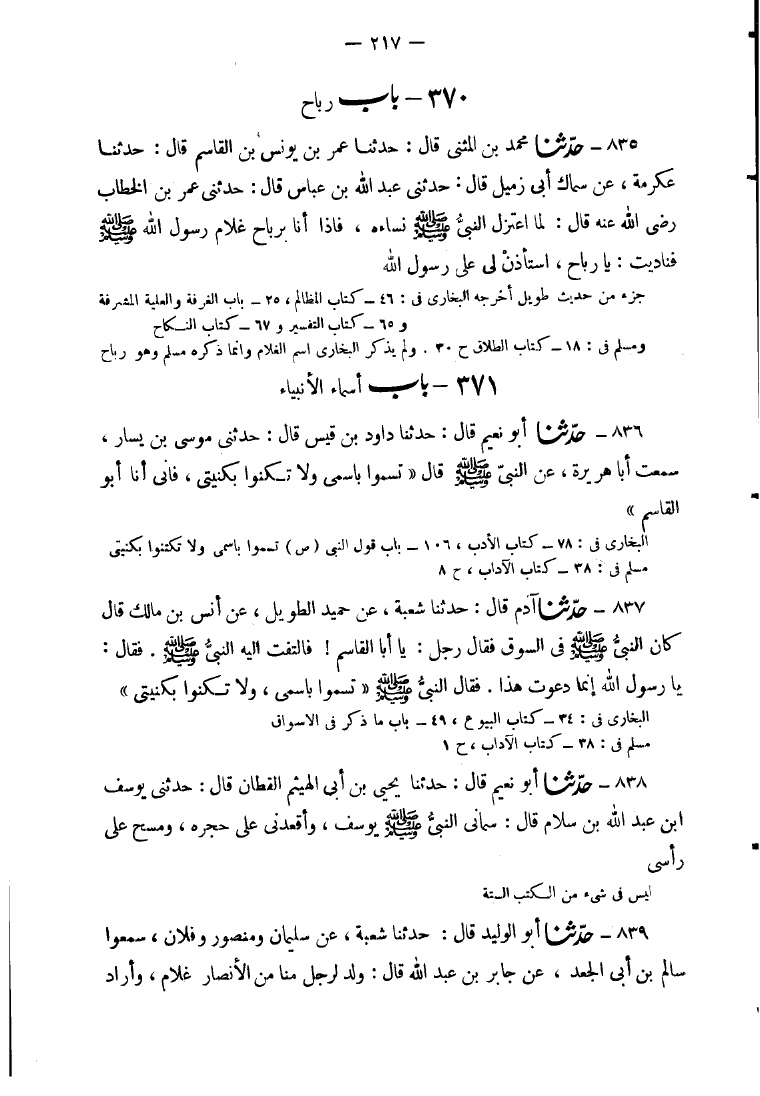 — ٢١٧ —
٣٧٠ – باب رباح
٨٣٥ – حدّثنا محمد بن المثنى قال : حدثنا عمر بن يونس بن القاسم قال : حدثنا
عكرمة ، عن سماك أبى زميل قال : حدثنى عبد الله بن عباس قال : حدثنى عمر بن الخطاب
رضى الله عنه قال : لما اعتزل النبىُّ ﷺ نساءه ، فاذا أنا برباح غلام رسول الله ﷺ
فناديت : يا رباح ، استأذنْ لى على رسول الله
جزء من حديث طويل أخرجه البخارى فى : ٤٦ – كتاب المظالم ، ٢٥ – باب الغرفة والعلية المشرفة
و ٦٥ – كتاب التفسير و ٦٧ – كتاب النكاح
ومسلم فى : ١٨ – كتاب الطلاق ح ٣٠ . ولم يذكر البخارى اسم الغلام وانما ذكره مسلم وهو رباح
٣٧١ – باب أسماء الأنبياء
٨٣٦ – حدّثنا أبو نعيم قال : حدثنا داود بن قيس قال : حدثنى موسى بن يسار ،
سمعت أبا هريرة ، عن النبىّ ﷺ قال « تسموا باسمى ولا تكنوا بكنيتى ، فانى أنا أبو
القاسم »
البخارى فى : ٧٨ – كتاب الأدب ، ١٠٦ – باب قول النبى (ص) تسموا باسمى ولا تكتنوا بكنيتى
مسلم فى : ٣٨ – كتاب الآداب ، ح ٨
٨٣٧ – حدّثنا آدم قال : حدثنا شعبة ، عن حميد الطويل ، عن أنس بن مالك قال
كان النبىُّ ﷺ فى السوق فقال رجل : يا أبا القاسم ! فالتفت اليه النبىُّ ﷺ . فقال :
يا رسول الله إنما دعوت هذا . فقال النبىُّ ﷺ « تسموا باسمى ، ولا تكنوا بكنيتى »
البخارى فى : ٣٤ – كتاب البيوع ، ٤٩ – باب ما ذكر فى الاسواق
مسلم فى : ٣٨ – كتاب الآداب ، ح ١
٨٣٨ – حدّثنا أبو نعيم قال : حدثنا يحيى بن أبى الهيثم القطان قال : حدثنى يوسف
ابن عبد الله بن سلام قال : سمانى النبىُّ ﷺ يوسف ، وأقعدنى على حجره ، ومسح على
رأسى
ليس فى شىء من الكتب الستة
٨٣٩ – حدّثنا أبو الوليد قال : حدثنا شعبة ، عن سليمان ومنصور وفلان ، سمعوا
سالم بن أبى الجعد ، عن جابر بن عبد الله قال : ولد لرجل منا من الأنصار غلام ، وأراد